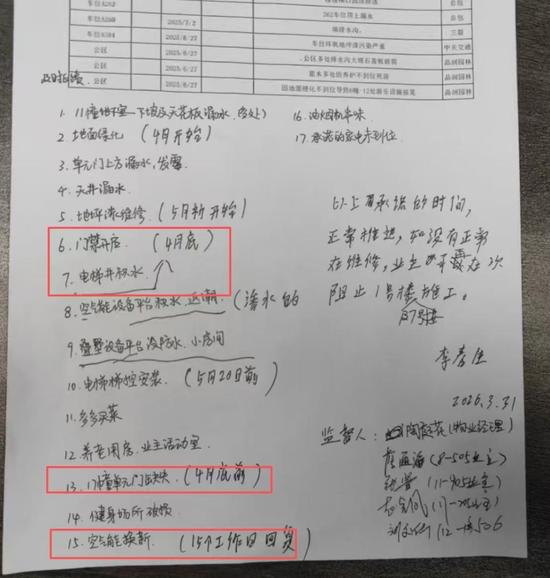 车位A262 2025/ 车位
车位A260 2025/7/2 262车位顶上漏水 总包
车位A384 2025/6/27 墙排水沟。
公区 2025/6/27 车位环氧地坪漆污染严重 中天交通
公区 2025/6/27 公区多处排水沟大理石盖板破损 品润园林
公区 2025/6/27 苗木多处培养护不到位死苗 品润园林
园地面硬化不到位导致6幢-12处游乐设施摇晃 品润园林
1. 11幢地下室一下坡及天花板漏水、多处)
2. 地面绿化 (4月开始)
3. 单元门上方漏水,发霉
4. 天井漏水
5. 地坪漆维修 (5月初开始)
6. 门禁开启 (4月底)
7. 电梯井积水
8. 空气能设备平台积水、返潮 (渗水的
9. 叠墅设备平台没防水、小房间
10. 电梯梯控安装 (5月20日前)
11. 多多买菜
12. 养老用房、业主活动室
13. 单元门 (4月底前)
14. 健身场所破损
15. 空气能换新 (15个工作日回复)
16. 油烟机串味
17. 承诺的家电未到位
以上要承练的时间,
正常推进,如没有正常
在维修,业主 在次
阻止1号楼施工。
李春生
2026.3.31
监督人: (物业经理)
(8-505业主)
(11-905业主)